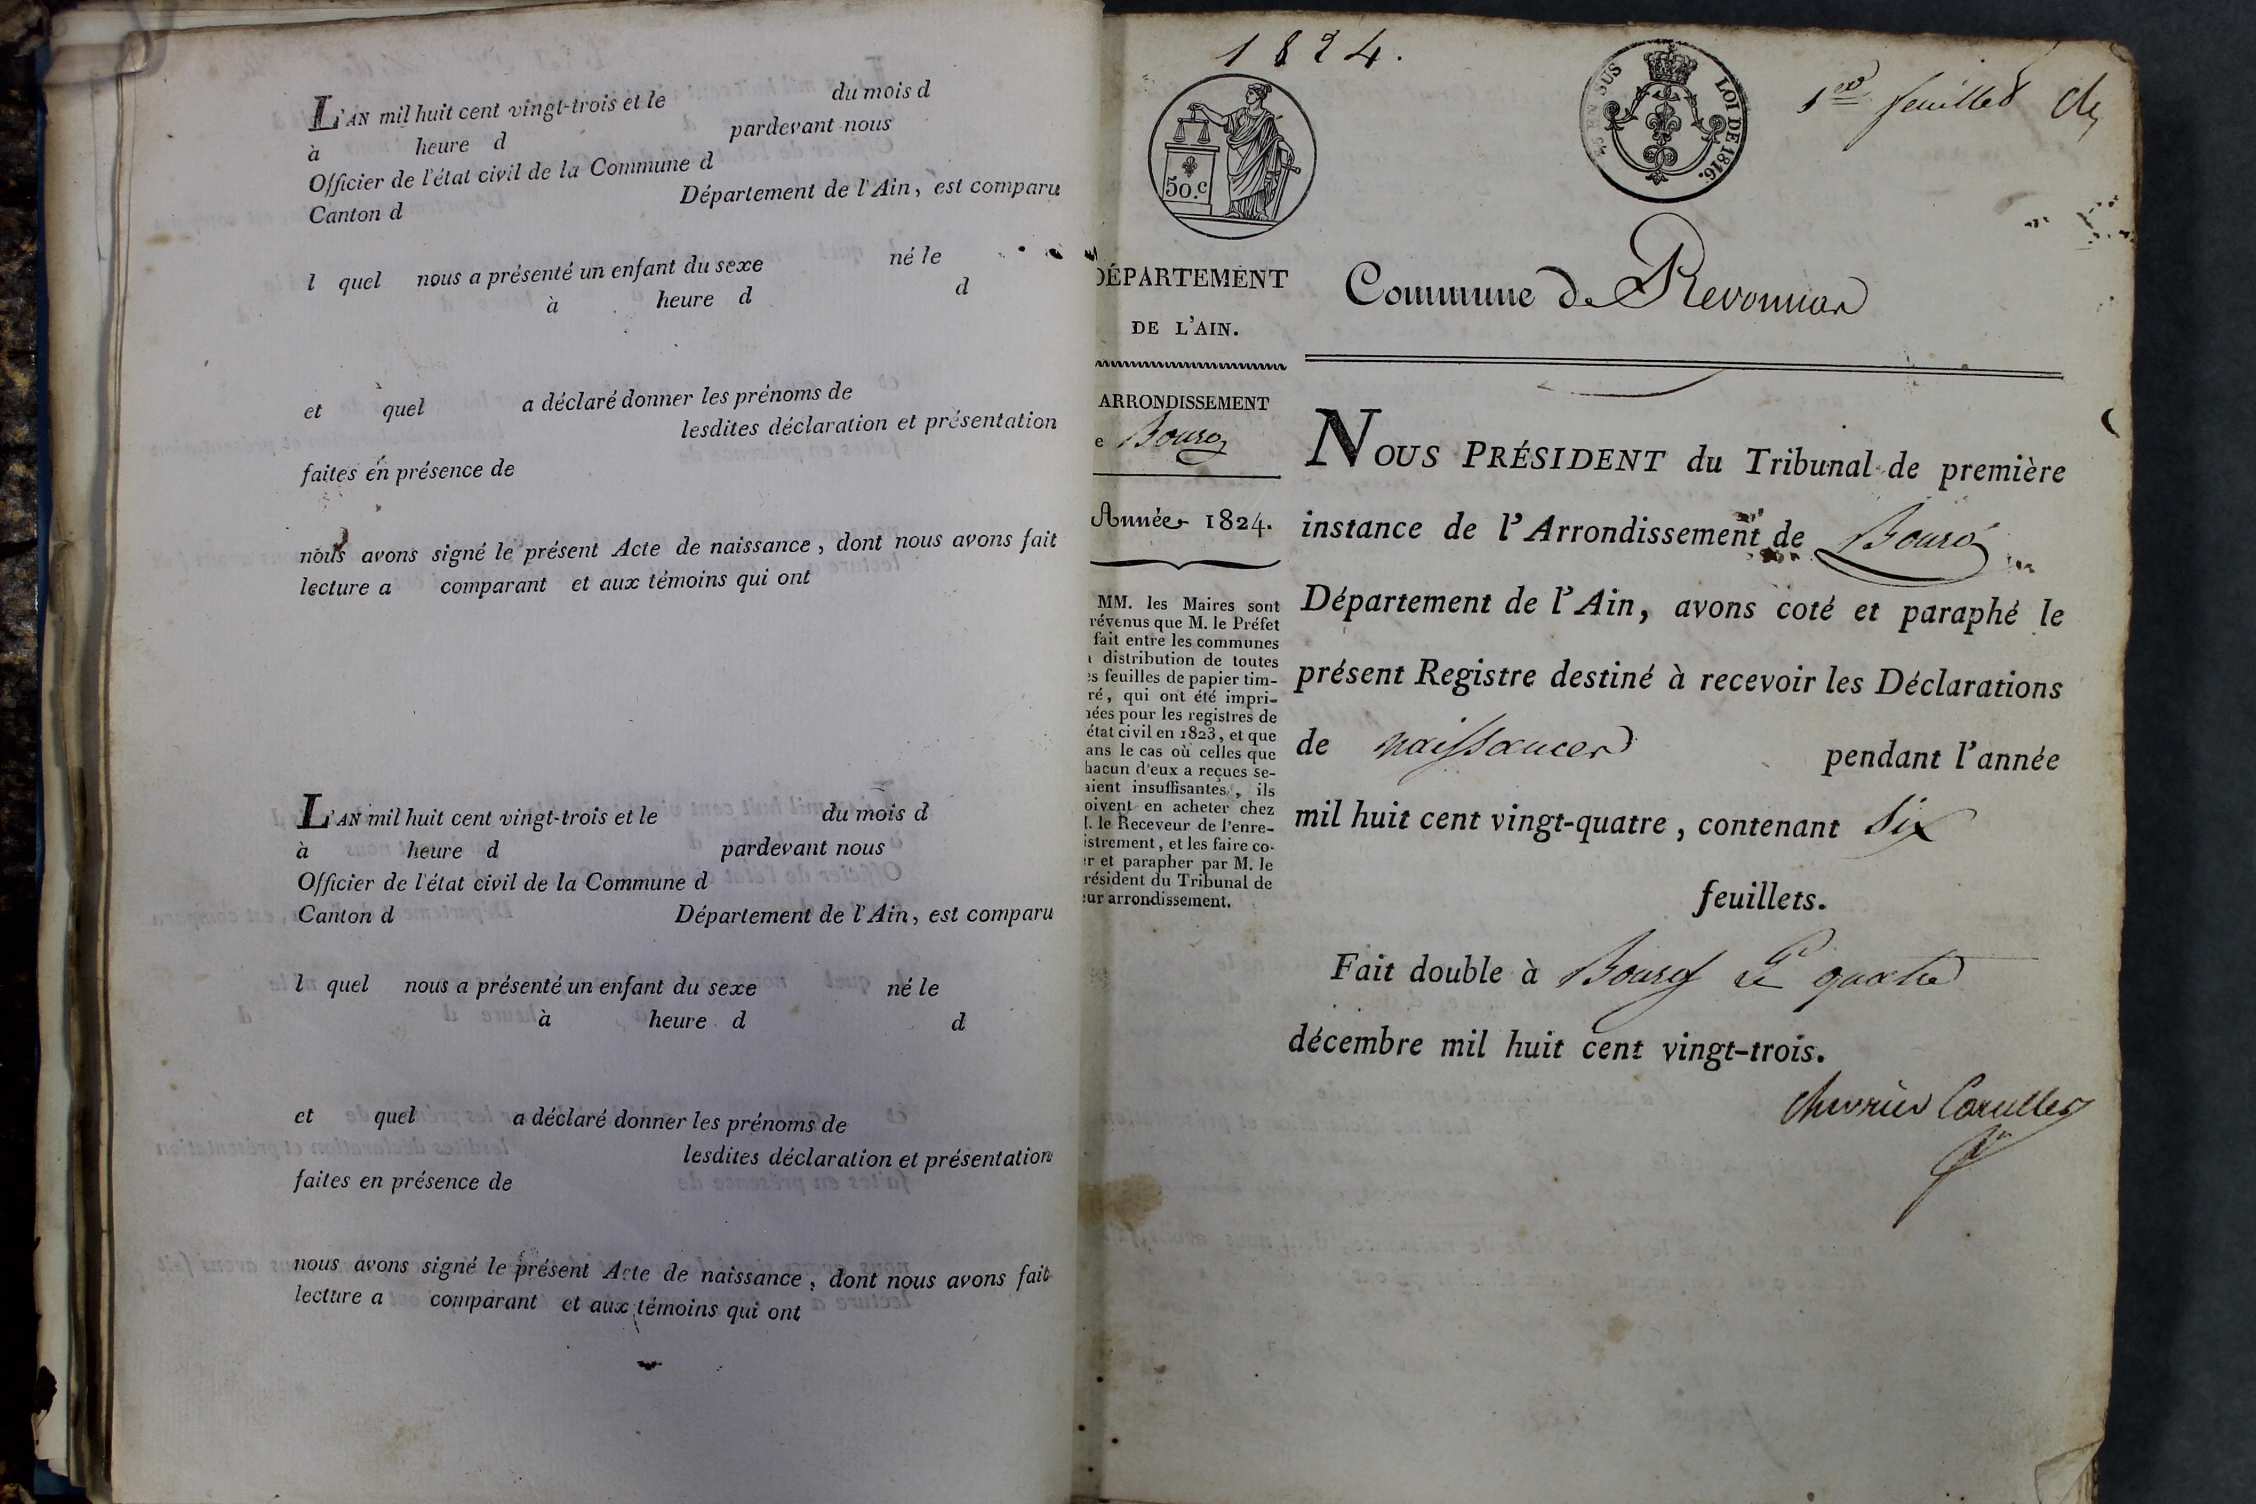 L'AN mil huit cent vingt-trois et le du mois d
à heure d pardevant nous
Officier de l'état civil de la Commune d
Canton d Département de l'Ain, est comparu
l quel nous a présenté un enfant du sexe né le
à heure d d
et quel a déclaré donner les prénoms de
lesdites déclaration et présentation
faites en présence de
nous avons signé le présent Acte de naissance, dont nous avons fait
lecture a comparant et aux témoins qui ont
L'AN mil huit cent vingt-trois et le du mois d
à heure d pardevant nous
Officier de l'état civil de la Commune d
Canton d Département de l'Ain, est comparu
l quel nous a présenté un enfant du sexe né le
à heure d d
et quel a déclaré donner les prénoms de
lesdites déclaration et présentation
faites en présence de
nous avons signé le présent Acte de naissance, dont nous avons fait
lecture a comparant et aux témoins qui ont
1824.
50.c
EN SUS LOI DE 1816.
1er feuillet
DÉPARTEMENT
DE L'AIN.
ARRONDISSEMENT
e Bourg
Année 1824.
MM. les Maires sont
révenus que M. le Préfet
fait entre les communes
a distribution de toutes
es feuilles de papier tim-
ré, qui ont été impri-
ées pour les registres de
état civil en 1823, et que
ans le cas où celles que
hacun d'eux a reçues se-
aient insuffisantes, ils
oivent en acheter chez
. le Receveur de l'enre-
istrement, et les faire co-
er et parapher par M. le
résident du Tribunal de
eur arrondissement.
Commune de Revonnas
NOUS PRÉSIDENT du Tribunal de première
instance de l'Arrondissement de Bourg
Département de l'Ain, avons coté et paraphé le
présent Registre destiné à recevoir les Déclarations
de naissances pendant l'année
mil huit cent vingt-quatre, contenant Six
feuillets.
Fait double à Bourg le quatre
décembre mil huit cent vingt-trois.
Chevrier Corcelles